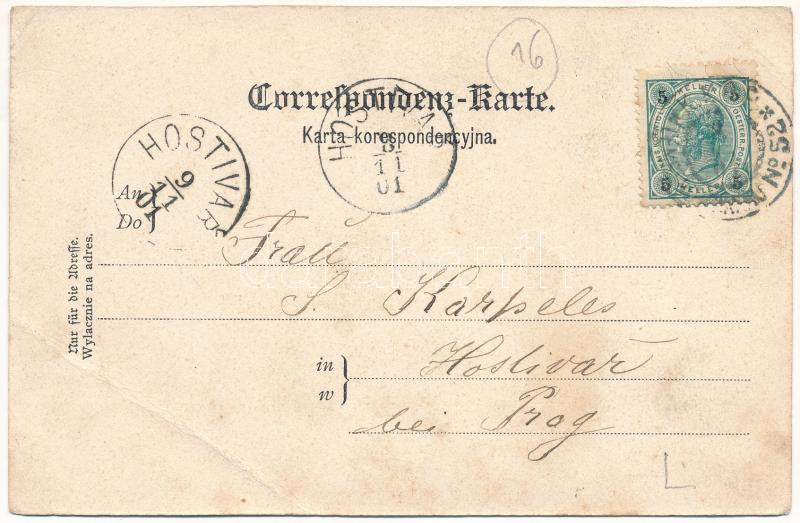 16
Correspondenz-Karte.
Karta korespondencyjna.
HOSTIVAŘ
9
11
01
HOSTIVAŘ
8
11
01
5 HELLER 5
5 HELLER 5
An
Do
Frau
S. Karpeles
in
w
Hostivař
bei Prag
Nur für die Adresse.
Wylacznie na adres.
L